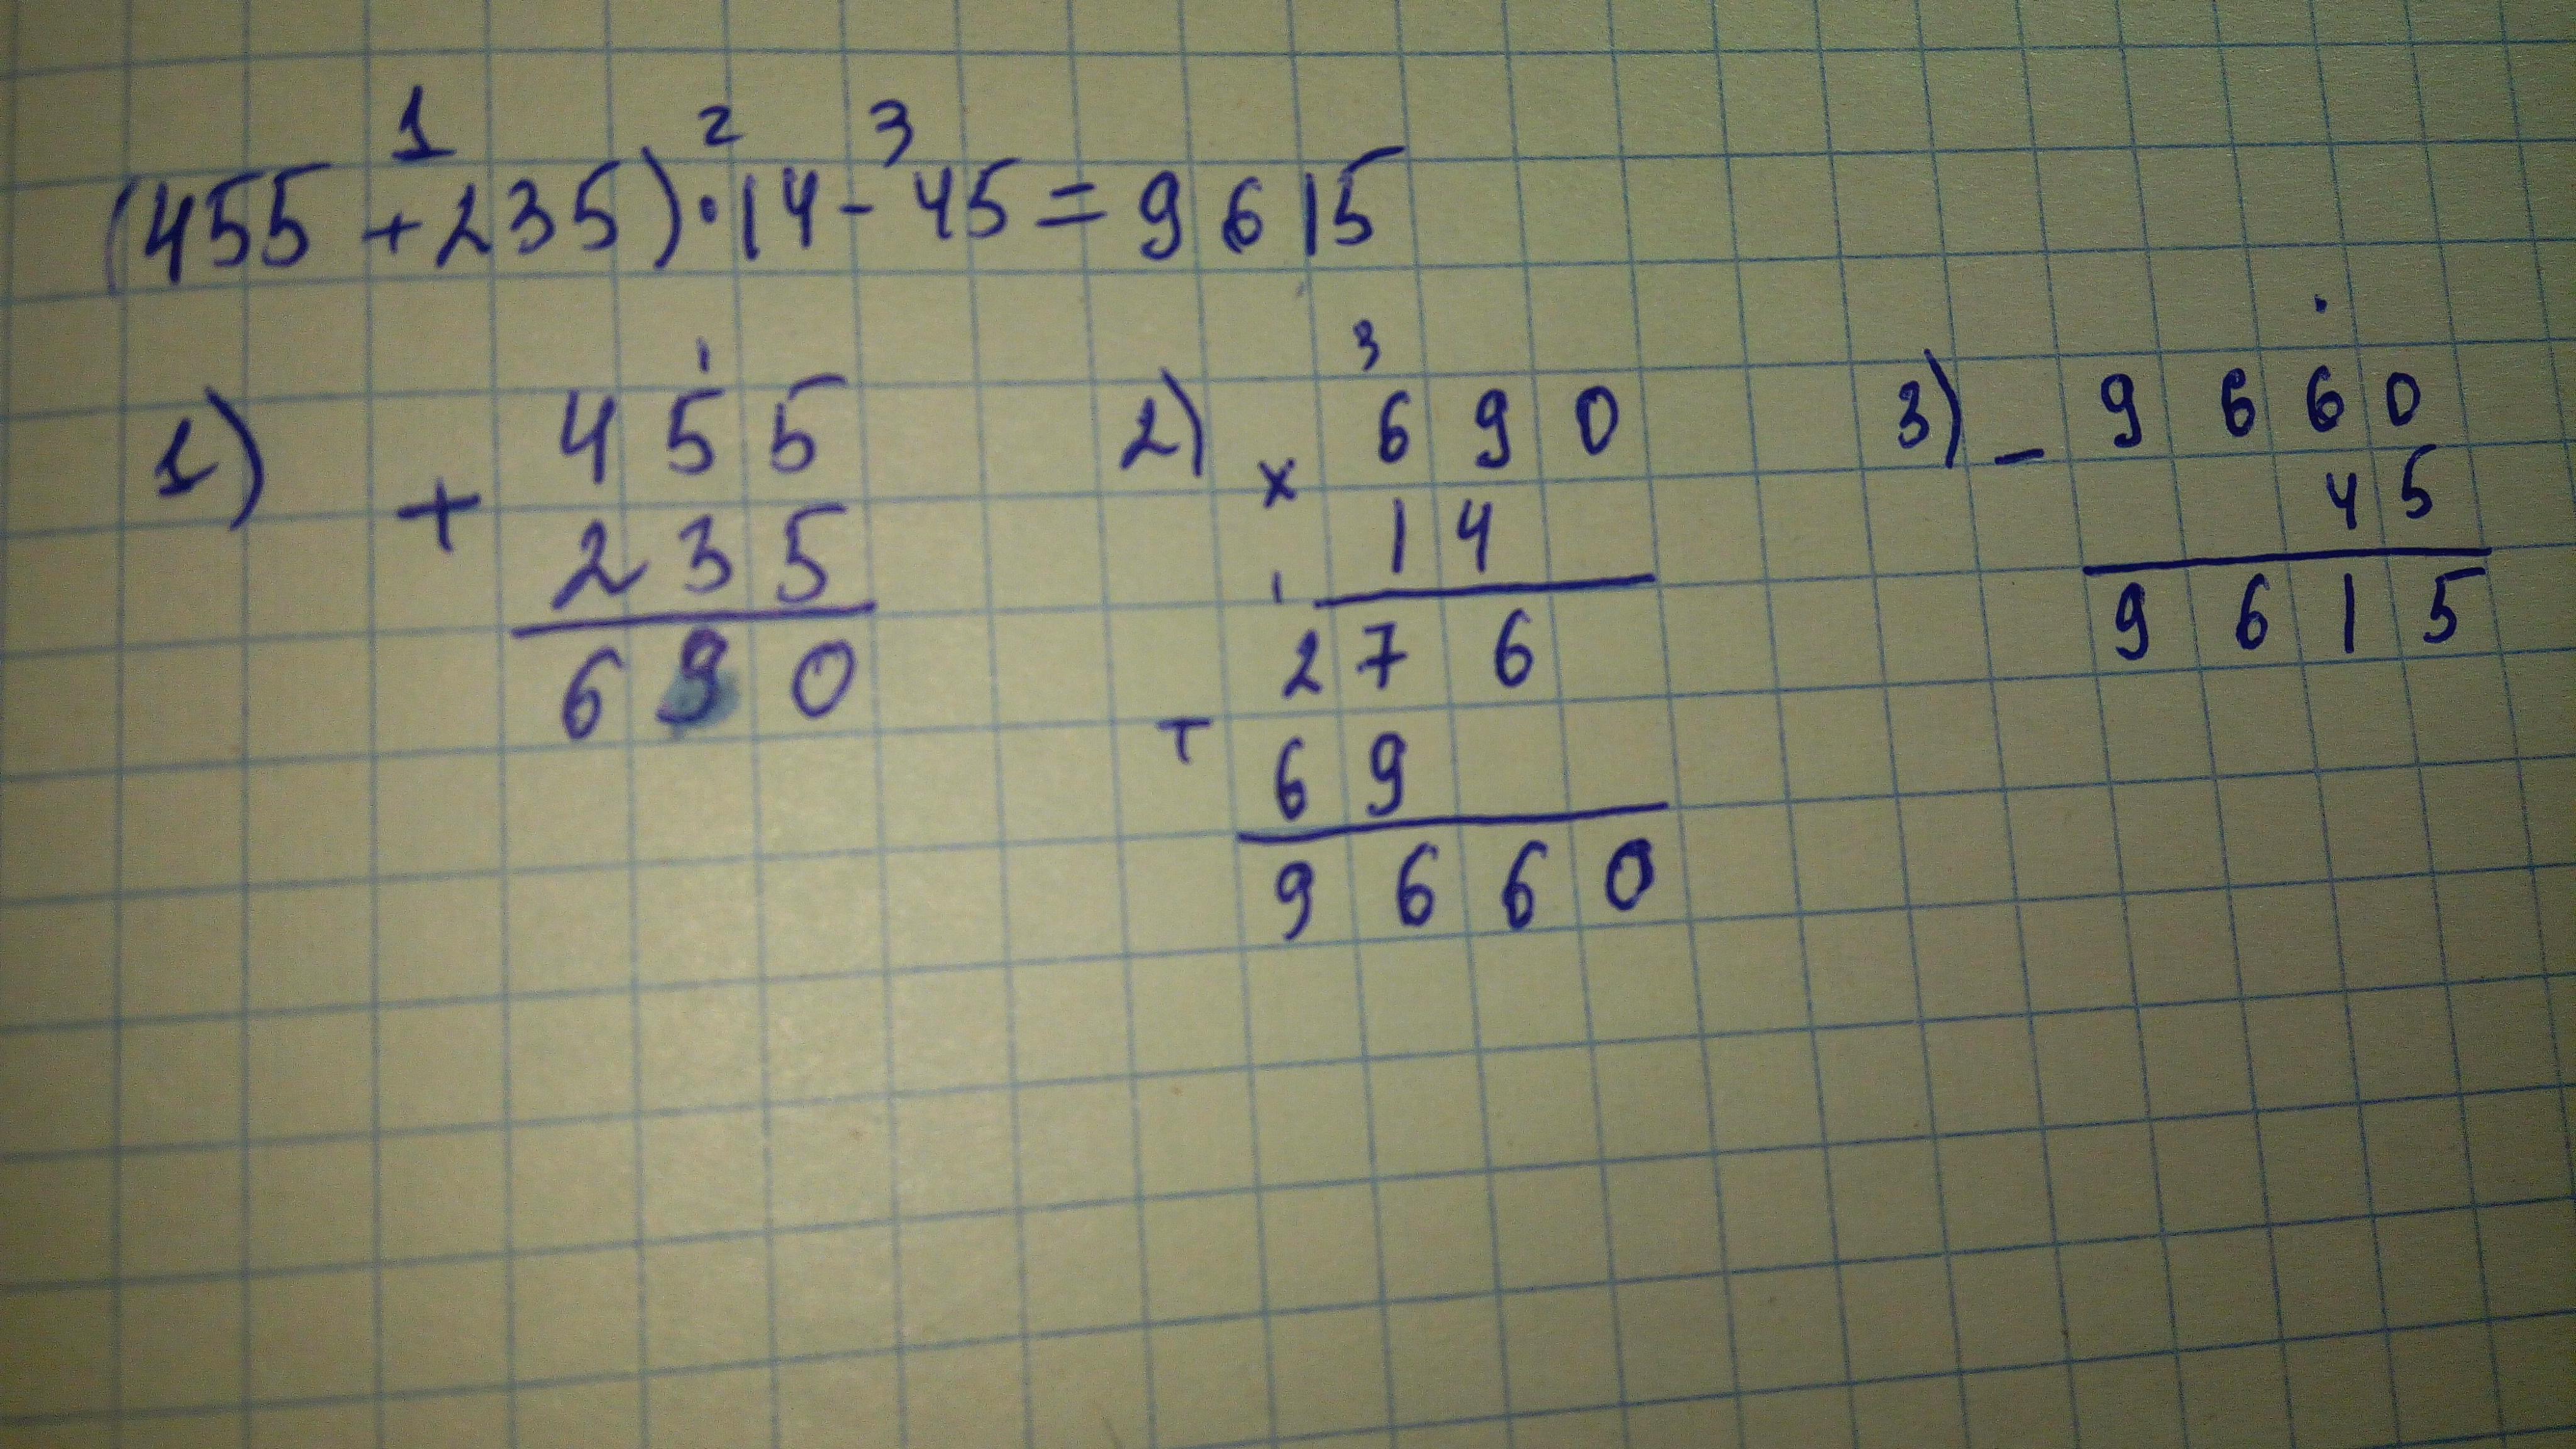 1 2 3
(455+235)·14-45=9615
1)
1
455
+
235
690
2)
3
690
×
14
1
276
+
69
9660
3)
.
9660
-
45
9615